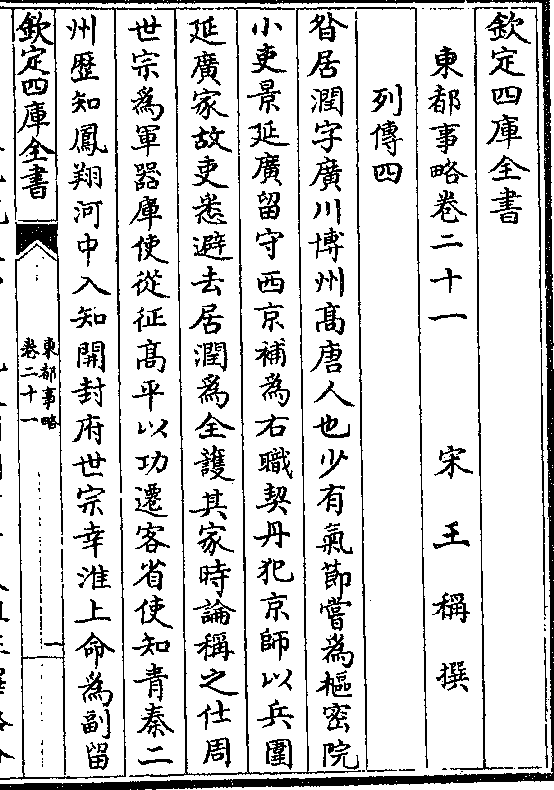 欽定四庫全書
東都事略卷二十一　宋王稱撰
列傳四
昝居潤字廣川博州髙唐人也少有氣節嘗為樞密院
小吏景延廣留守西京補為右職契丹犯京師以兵圍
延廣家故吏悉避去居潤為全䕶其家時論稱之仕周
世宗為軍器庫使從征髙平以功遷客省使知青秦二
州歴知鳳翔河中入知開封府世宗幸淮上命為副留
欽定四庫全書
東都事略
卷二十一
一